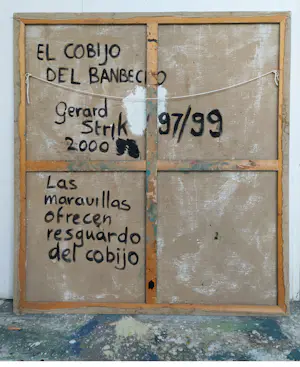 EL COBIJO
DEL BANBECHO
Gerard
Strik 97/99
2000
Las
maravillas
ofrecen
resguardo
del cobijo